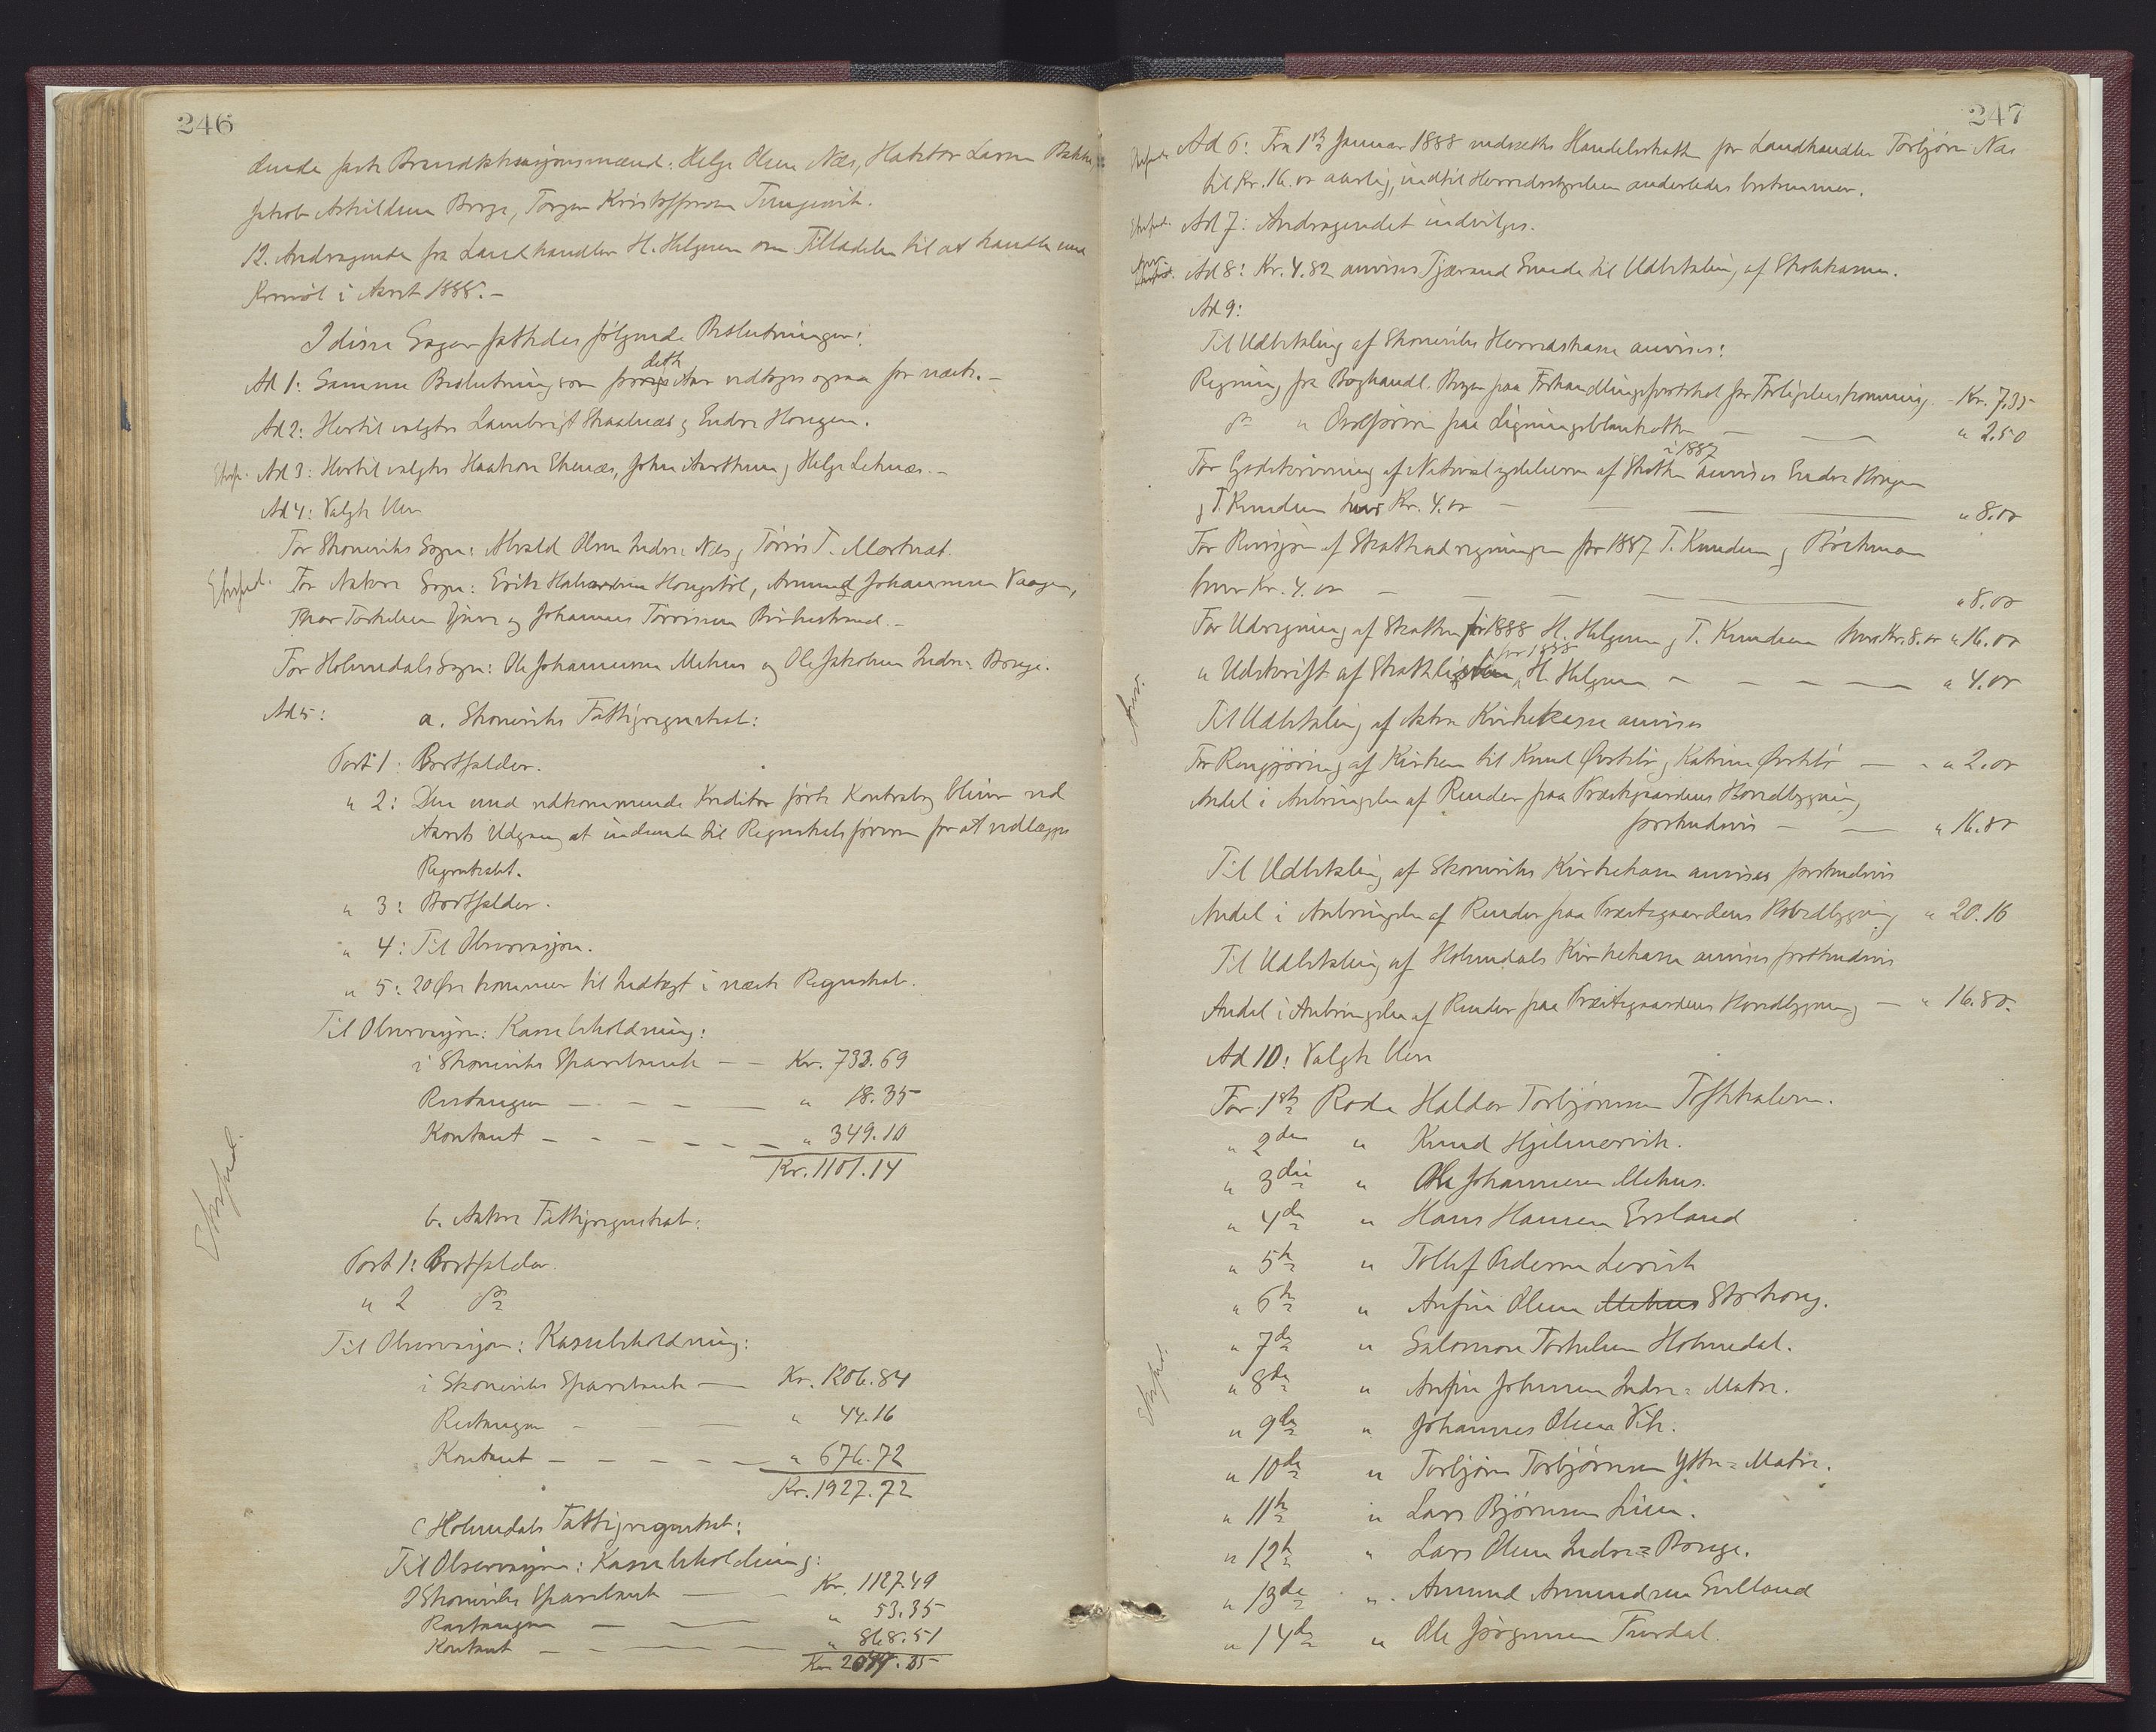 246
dende faste Brandtaksasjonsmænd: Helge Olsen Næs, Haktor Larsen Bakke,
Jakob Askildsen Borge, Torger Kristoffersen Tungesvik.
12. Andragende fra Landhandler H. Helgesen om Tilladelse til at handle med
Kroneøl i Aaret 1888. -
I disse Sager fattedes følgende Beslutninger:
Ad 1: Samme Beslutning som for dette Aar vedtages ogsaa for næste. -
Ad 2: Hertil valgtes Lambrigt Skaalnæs og Endre Hougen.
Exsped. Ad 3: Hertil valgtes Haakon Ekenæs, John Aarthun og Helge Leknæs. -
Ad 4: Valgte blev
For Skoneviks Sogn: Alvald Olsen Indre-Næs og Tørris T. Mærkved.
Exsped. For Aakre Sogn: Erik Halvorsen Hougstøl, Amund Johannesen Vaagen,
Thor Torkelsen Djuve og Johannes Tørrisen Birkestrand. -
For Holmedals Sogn: Ole Johannesen Mehus og Ole Jakobsen Indre-Borge.
Ad 5: a. Skoneviks Fattigregnskab:
Post 1: Bortfalder.
" 2: Den med vedkommende Kreditor førte Kontrabog bliver ved
Aarets Udgang at indsende til Regnskabsføreren for at vedlægges
Regnskabet.
" 3: Bortfalder.
" 4: Til Observasjon.
" 5: 20 Øre kommer til Indtægt i næste Regnskab.
Til Observasjon: Kassebeholdning:
i Skoneviks Sparebank - - Kr. 733.69
Restanser - - - - " 18.35
Kontant - - - - - - " 349.10
Kr. 1101.14
Exsped.
b. Aakre Fattigregnskab:
Post 1: Bortfalder.
" 2 do
Til Observasjon: Kassebeholdning:
i Skoneviks Sparebank - Kr. 1206.84
Restanser - - - " 44.16
Kontant - - - - - " 676.72
Kr. 1927.72
c Holmedals Fattigregnskab:
Til Observasjon: Kassebeholdning:
I Skoneviks Sparebank - - Kr. 1127.49
Restanser - - " 53.35
Kontant - - - " 868.51
Kr. 2049.35
247
Exsped. Ad 6: Fra 1ste Januar 1888 nedsættes Handelsskatten for Landhandler Torbjørn Næs
til Kr. 16.00 aarlig, indtil Herredsstyrelsen anderledes bestemmer.
Exsped. Ad 7: Andragendet indvilges.
Anv. Exsped. Ad 8: Kr. 4.82 anvises Tjærand Sunde til Udbetaling af Skolekassen.
Ad 9:
Til Udbetaling af Skoneviks Herredskasse anvises:
Regning fra Boghandl. Beyer paa Forhandlingsprotokol for Forligelseskommis. - Kr. 7.35
do " Ordføreren paa Ligningsblanketter - - " 2.50
For Godskrivning af Naturalydelserne af Skatten i 1887 anvises Endre Hougen
og T. Knudsen hver Kr. 4.00 - - - " 8.00
For Revisjon af Skatteudregningen for 1887 T. Knudsen og Böckman
hver Kr. 4.00 - - - - " 8.00
For Udregning af Skatten for 1888 H. Helgesen og T. Knudsen hver Kr. 8.00 " 16.00
" Udskrift af Skatteligsten for 1888 H. Helgesen - - - - " 4.00
Anv.
Til Udbetaling af Aakre Kirkekasse anvises
For Rengjøring af Kirken til Knud Øvstebø og Katrine Øvstebø - - " 2.00
Andel i Anbringelse af Render paa Præstgaardens Hovedbygning
forskudsvis - - " 16.80
Til Udbetaling af Skoneviks Kirkekasse anvises forskudsvis
Andel i Anbringelse af Render paa Præstegaardens Hovedbygning " 20.16
Til Udbetaling af Holmedals Kirkekasse anvises forskudsvis
Andel i Anbringelse af Render paa Præstegaardens Hovedbygning - " 16.80.
Ad 10: Valgte blev
For 1ste Rode Haldor Torbjørnsen Toftekalven.
" 2den " Knud Hjelmervik.
" 3die " Ole Johannesen Mehus.
" 4de " Hans Hansen Ersland
" 5te " Tollef Pedersen Lervik
" 6te " Anfin Olsen Mehus Storhoug.
" 7de " Salomon Torkelsen Holmedal.
Exsped.
" 8de " Anfin Johnsen Indre-Matre.
" 9de " Johannes Olsen Vik.
" 10de " Torbjørn Torbjørnsen Yttre-Matre.
" 11te " Lars Bjørnsen Lien.
" 12te " Lars Olsen Indre-Borge.
" 13de " Amund Amundsen Sælland
" 14de " Ole Jørgensen Furdal.